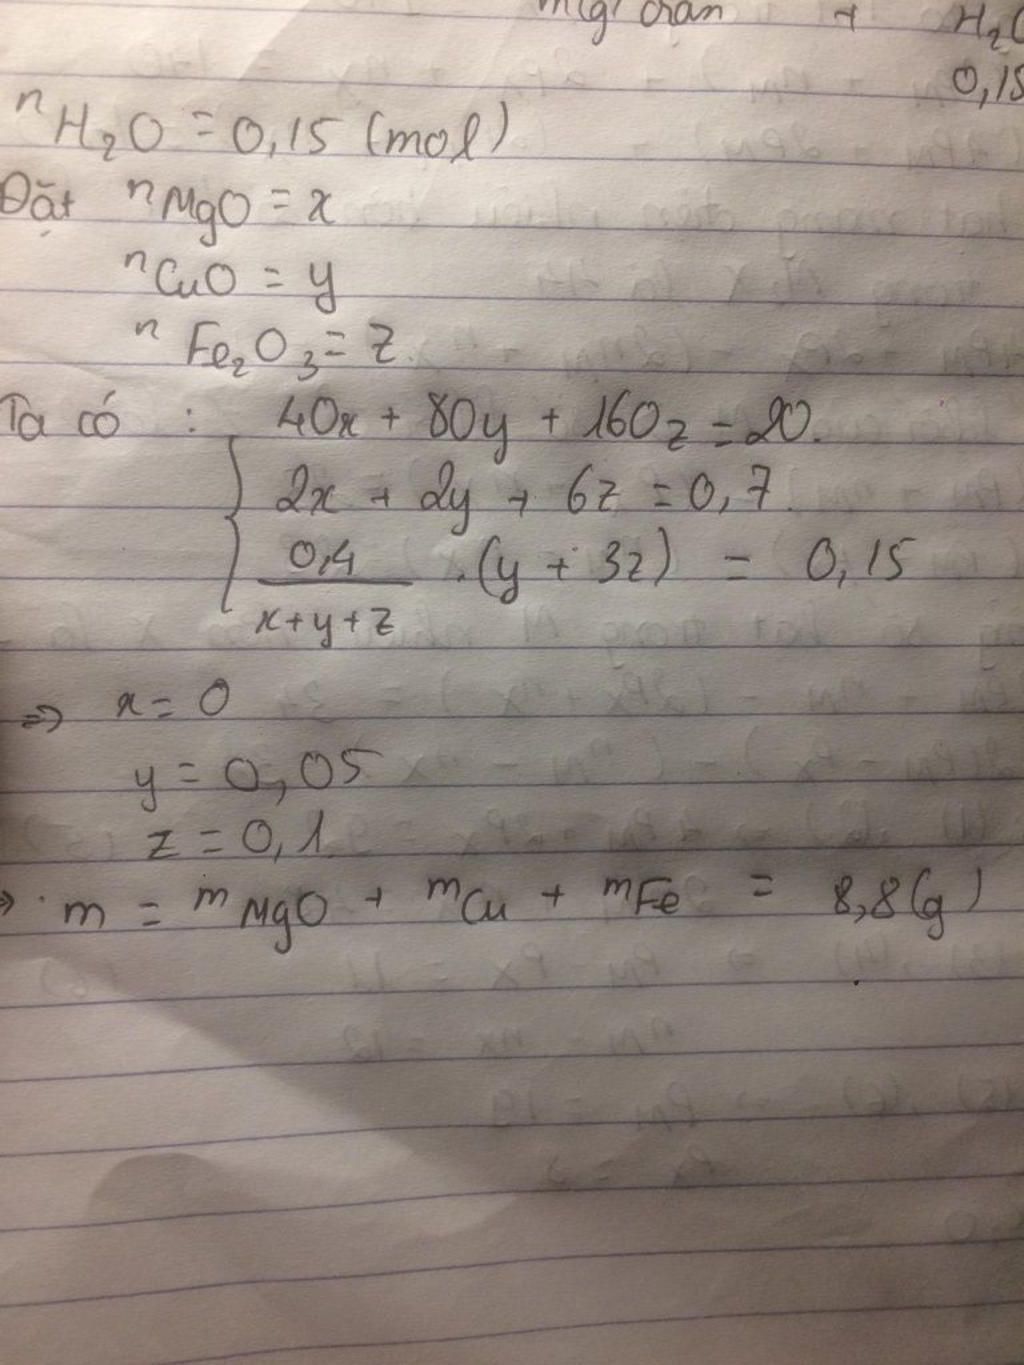 m(g) + H₂O
0,15
nH₂O = 0,15 (mol)
Đặt nMgO = x
nCuO = y
nFe₂O₃ = z.
Ta có : 40x + 80y + 160z = 20.
2x + 2y + 6z = 0,7.
0,4/(x+y+z) .(y + 3z) = 0,15
=> x = 0
y = 0,05
z = 0,1
=> m = mMgO + mCu + mFe = 8,8(g)